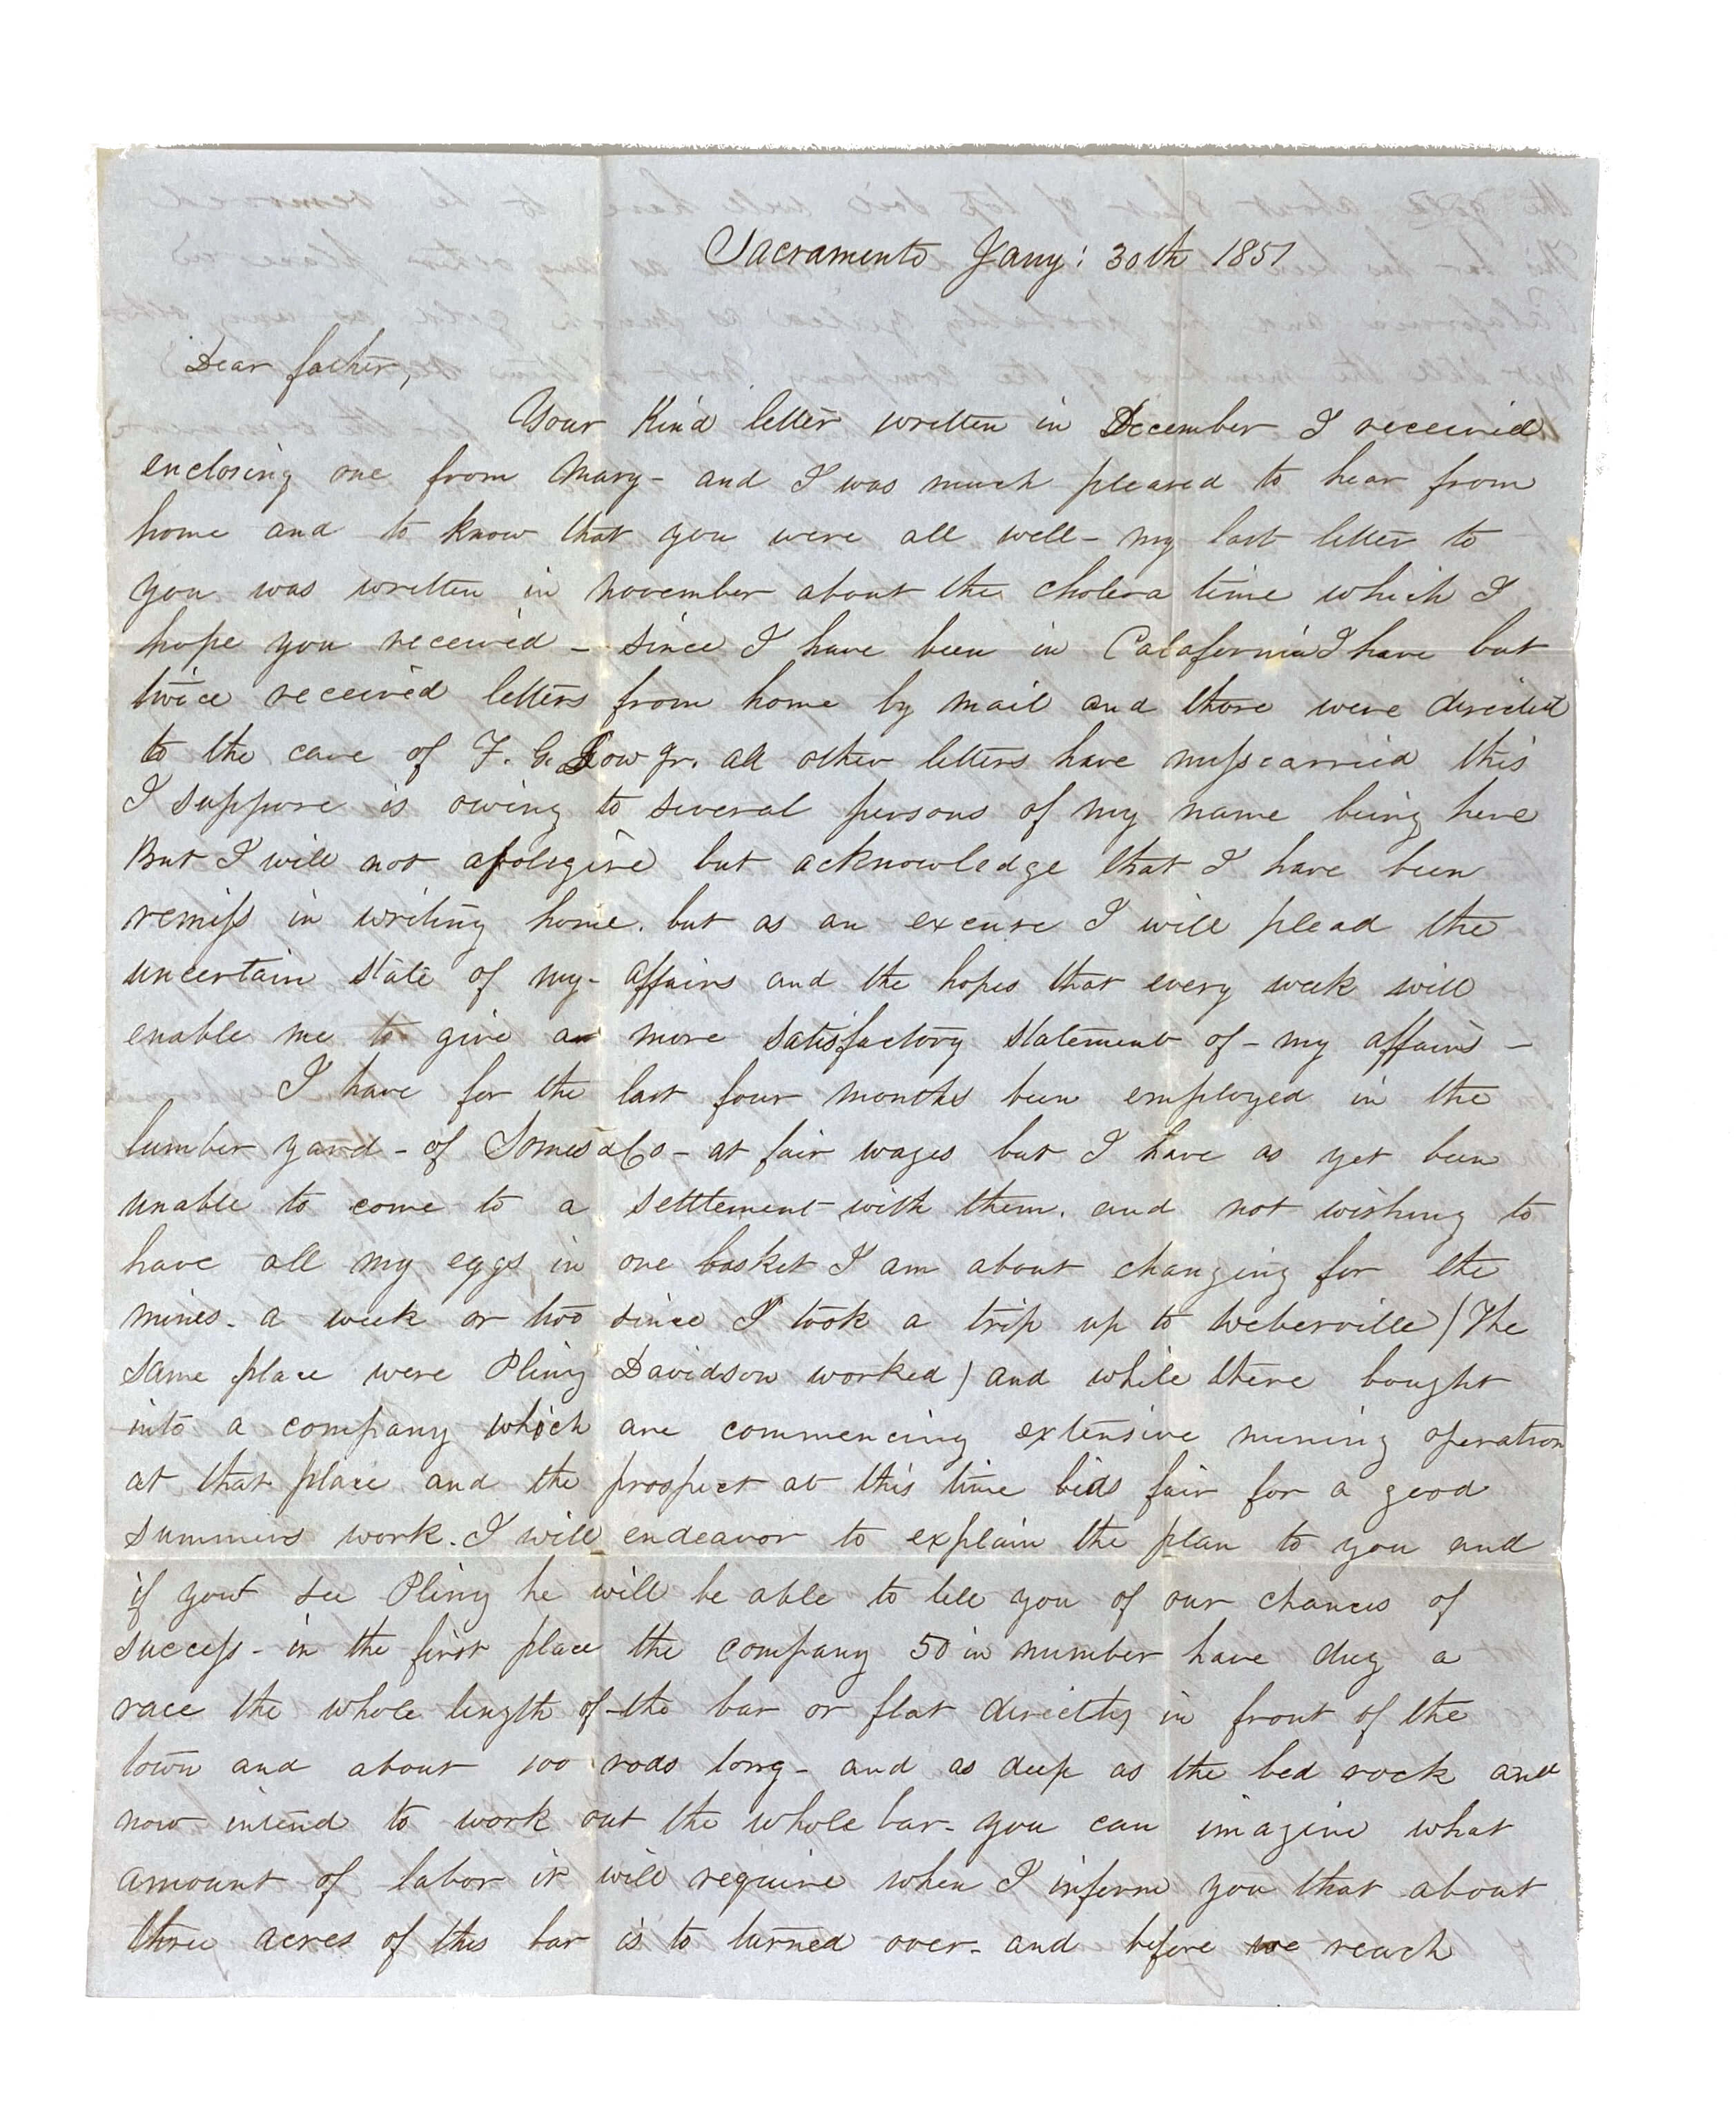 Sacramento Jany: 30th 1851
Dear father,
Your Kind letter written in December I received
enclosing one from Mary - and I was much pleased to hear from
home and to know that you were all well - my last letter to
you was written in November about the cholera time which I
hope you received - since I have been in Calafornia I have but
twice received letters from home by mail and those were directed
to the care of F. G. Low Jr. all other letters have misscarried this
I suppose is owing to several persons of my name being here
But I will not apologise but acknowledge that I have been
remiss in writing home. but as an excuse I will plead the
uncertain state of my - affairs and the hopes that every week will
enable me to give a more satisfactory statement of - my affairs -
I have for the last four months been employed in the
lumber yard - of Somes & Co - at fair wages but I have as yet been
unable to come to a settlement with them. and not wishing to
have all my eggs in one basket I am about changing for the
mines. a week or two since I took a trip up to Weberville (The
same place were Pliny Davidson worked) and while there bought
into a company which are commencing extensive mining operation
at that place and the prospect at this time bids fair for a good
summers work. I will endeavor to explain the plan to you and
if you see Pliny he will be able to tell you of our chances of
success - in the first place the company 50 in number have dug a
race the whole length of - the bar or flat directly in front of the
town and about 100 rods long - and as deep as the bed rock and
now intend to work out the whole bar - you can imagine what
amount of labor it will require when I inform you that about
three acres of this bar is to turned over - and before we reach